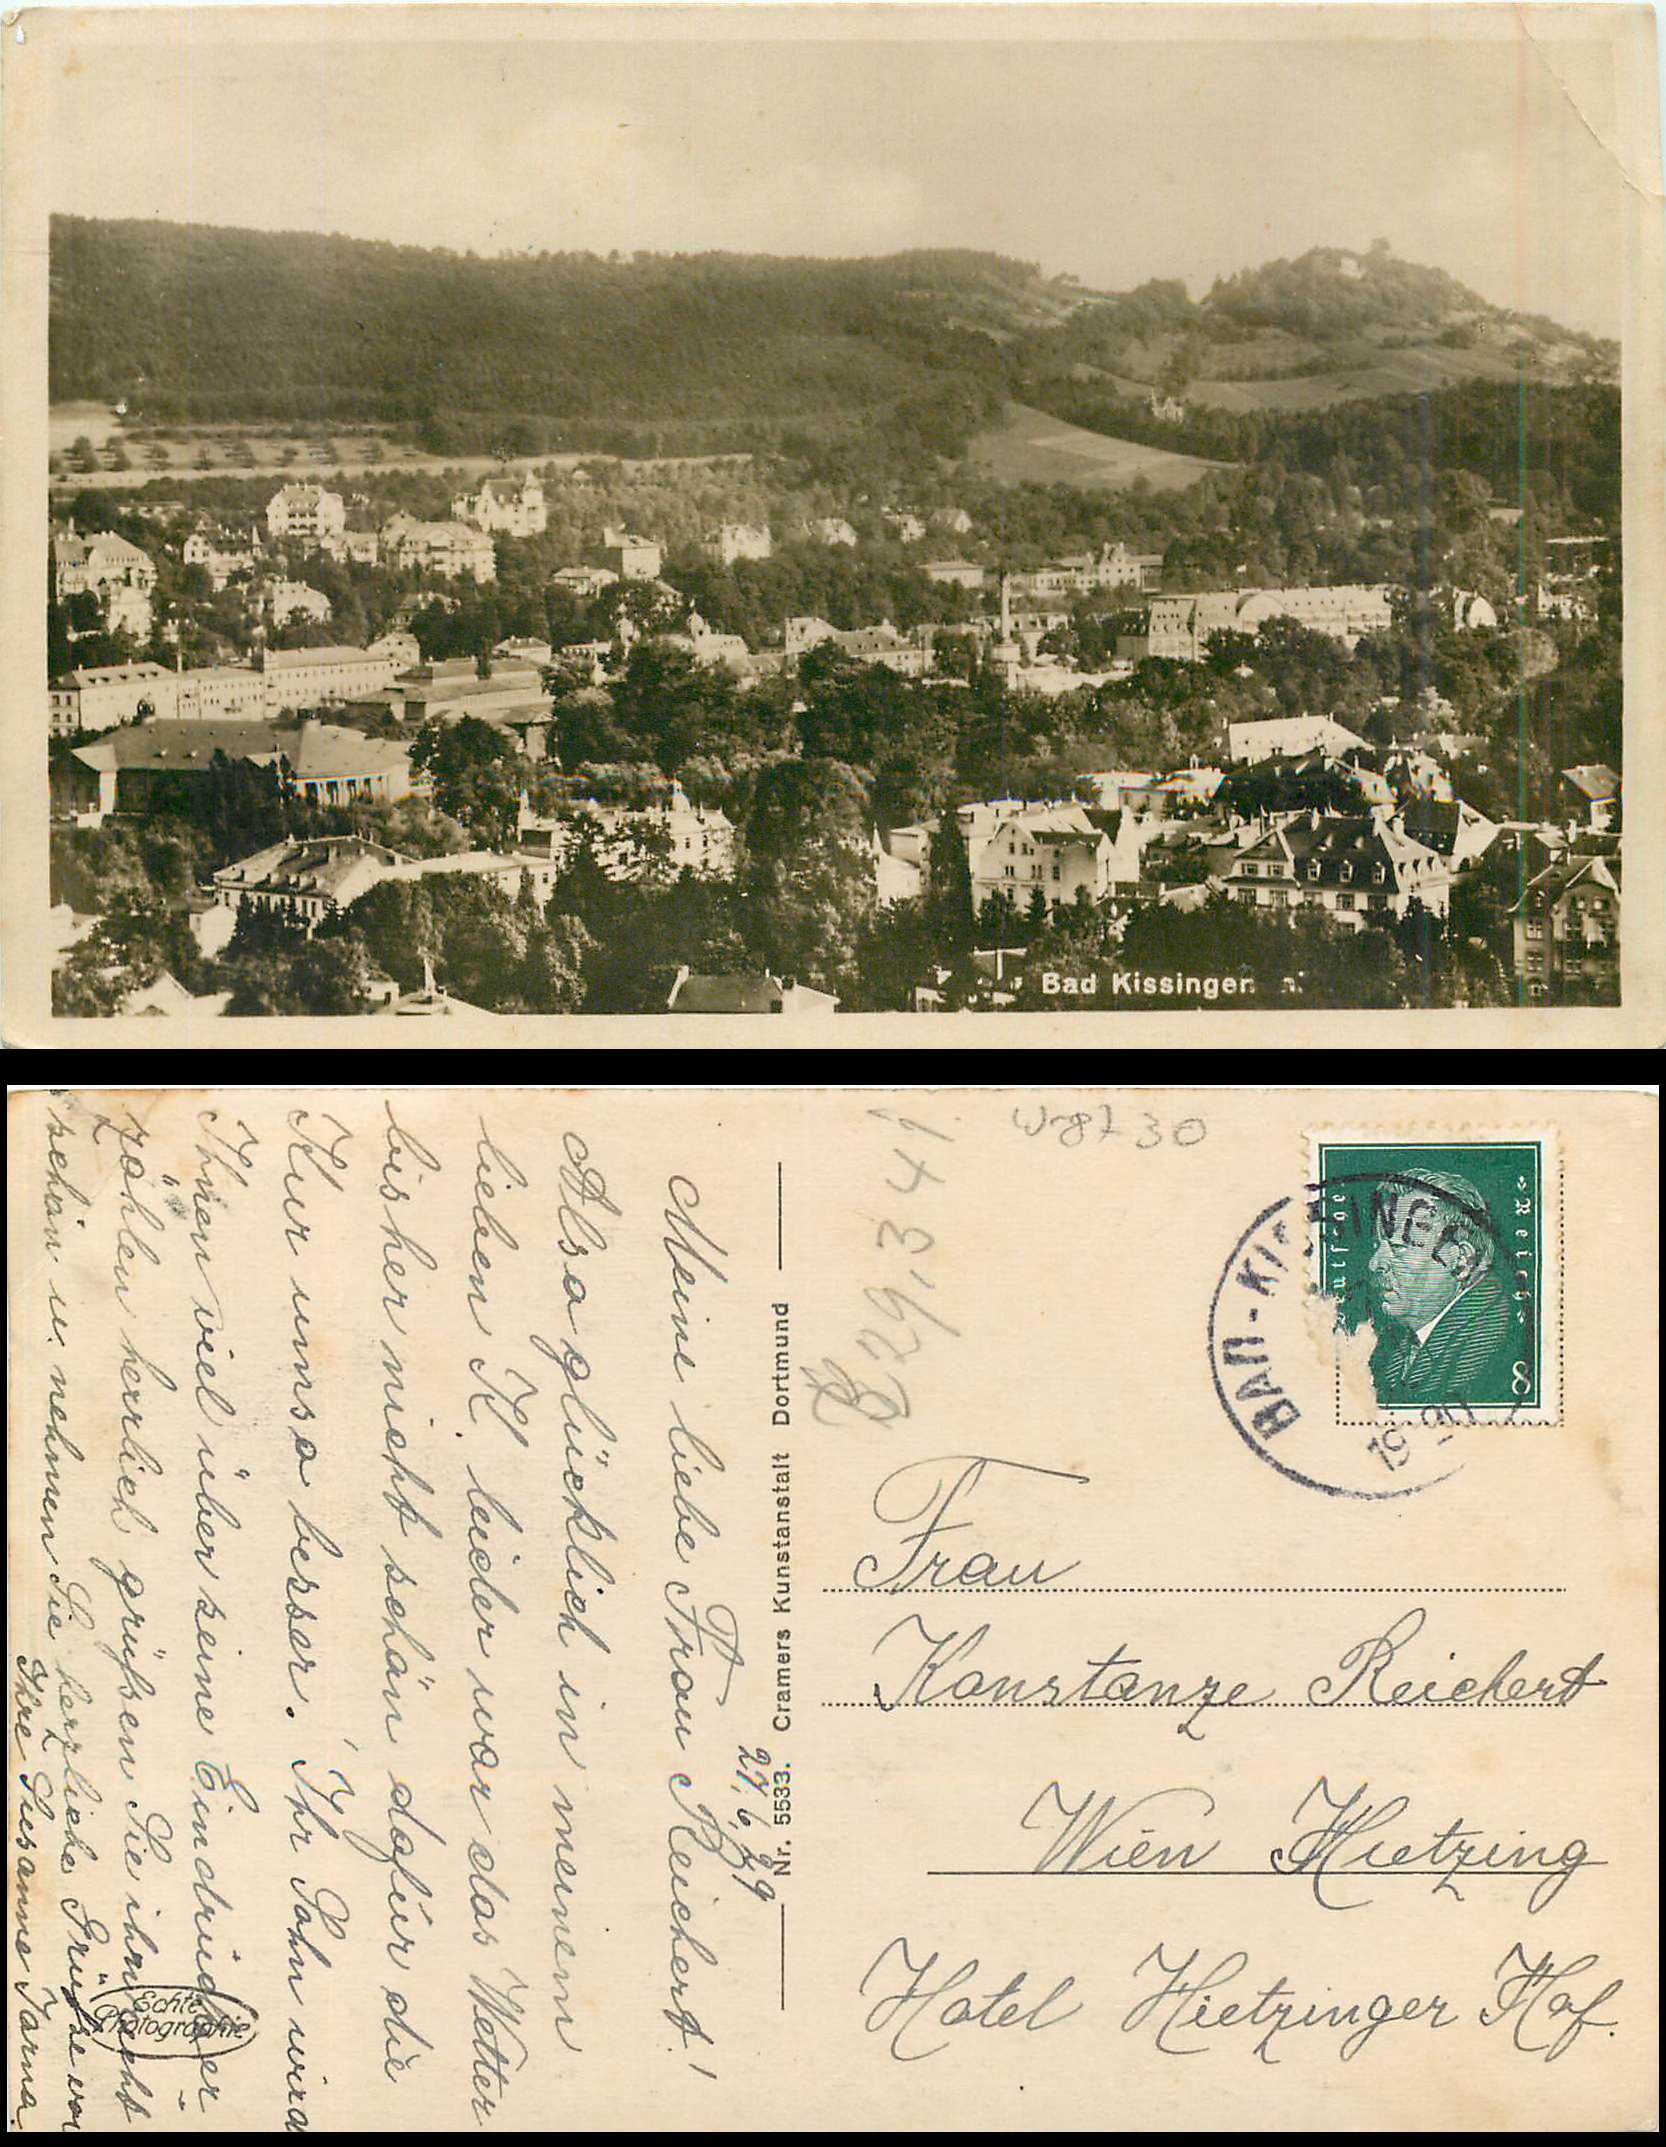 Bad Kissingen
27.6.29
Meine liebe Frau Reichert!
Also glücklich in meinem
lieben K. leider war das Wetter
bisher nicht schön dafür die
Kur umso besser. Ihr Sohn wird
Ihnen viel über seine Eindrücke
zählen herrlich grüßen Sie ihn
schön u. nehmen Sie herzliche Grüße von
Ihre Susanne
Echte
Photographie
Nr. 5533. Cramers Kunstanstalt Dortmund
30
Deutsches Reich
8
BAD-KISSINGEN
Frau
Konstanze Reichert
Wien Hietzing
Hotel Hietzinger Hof.